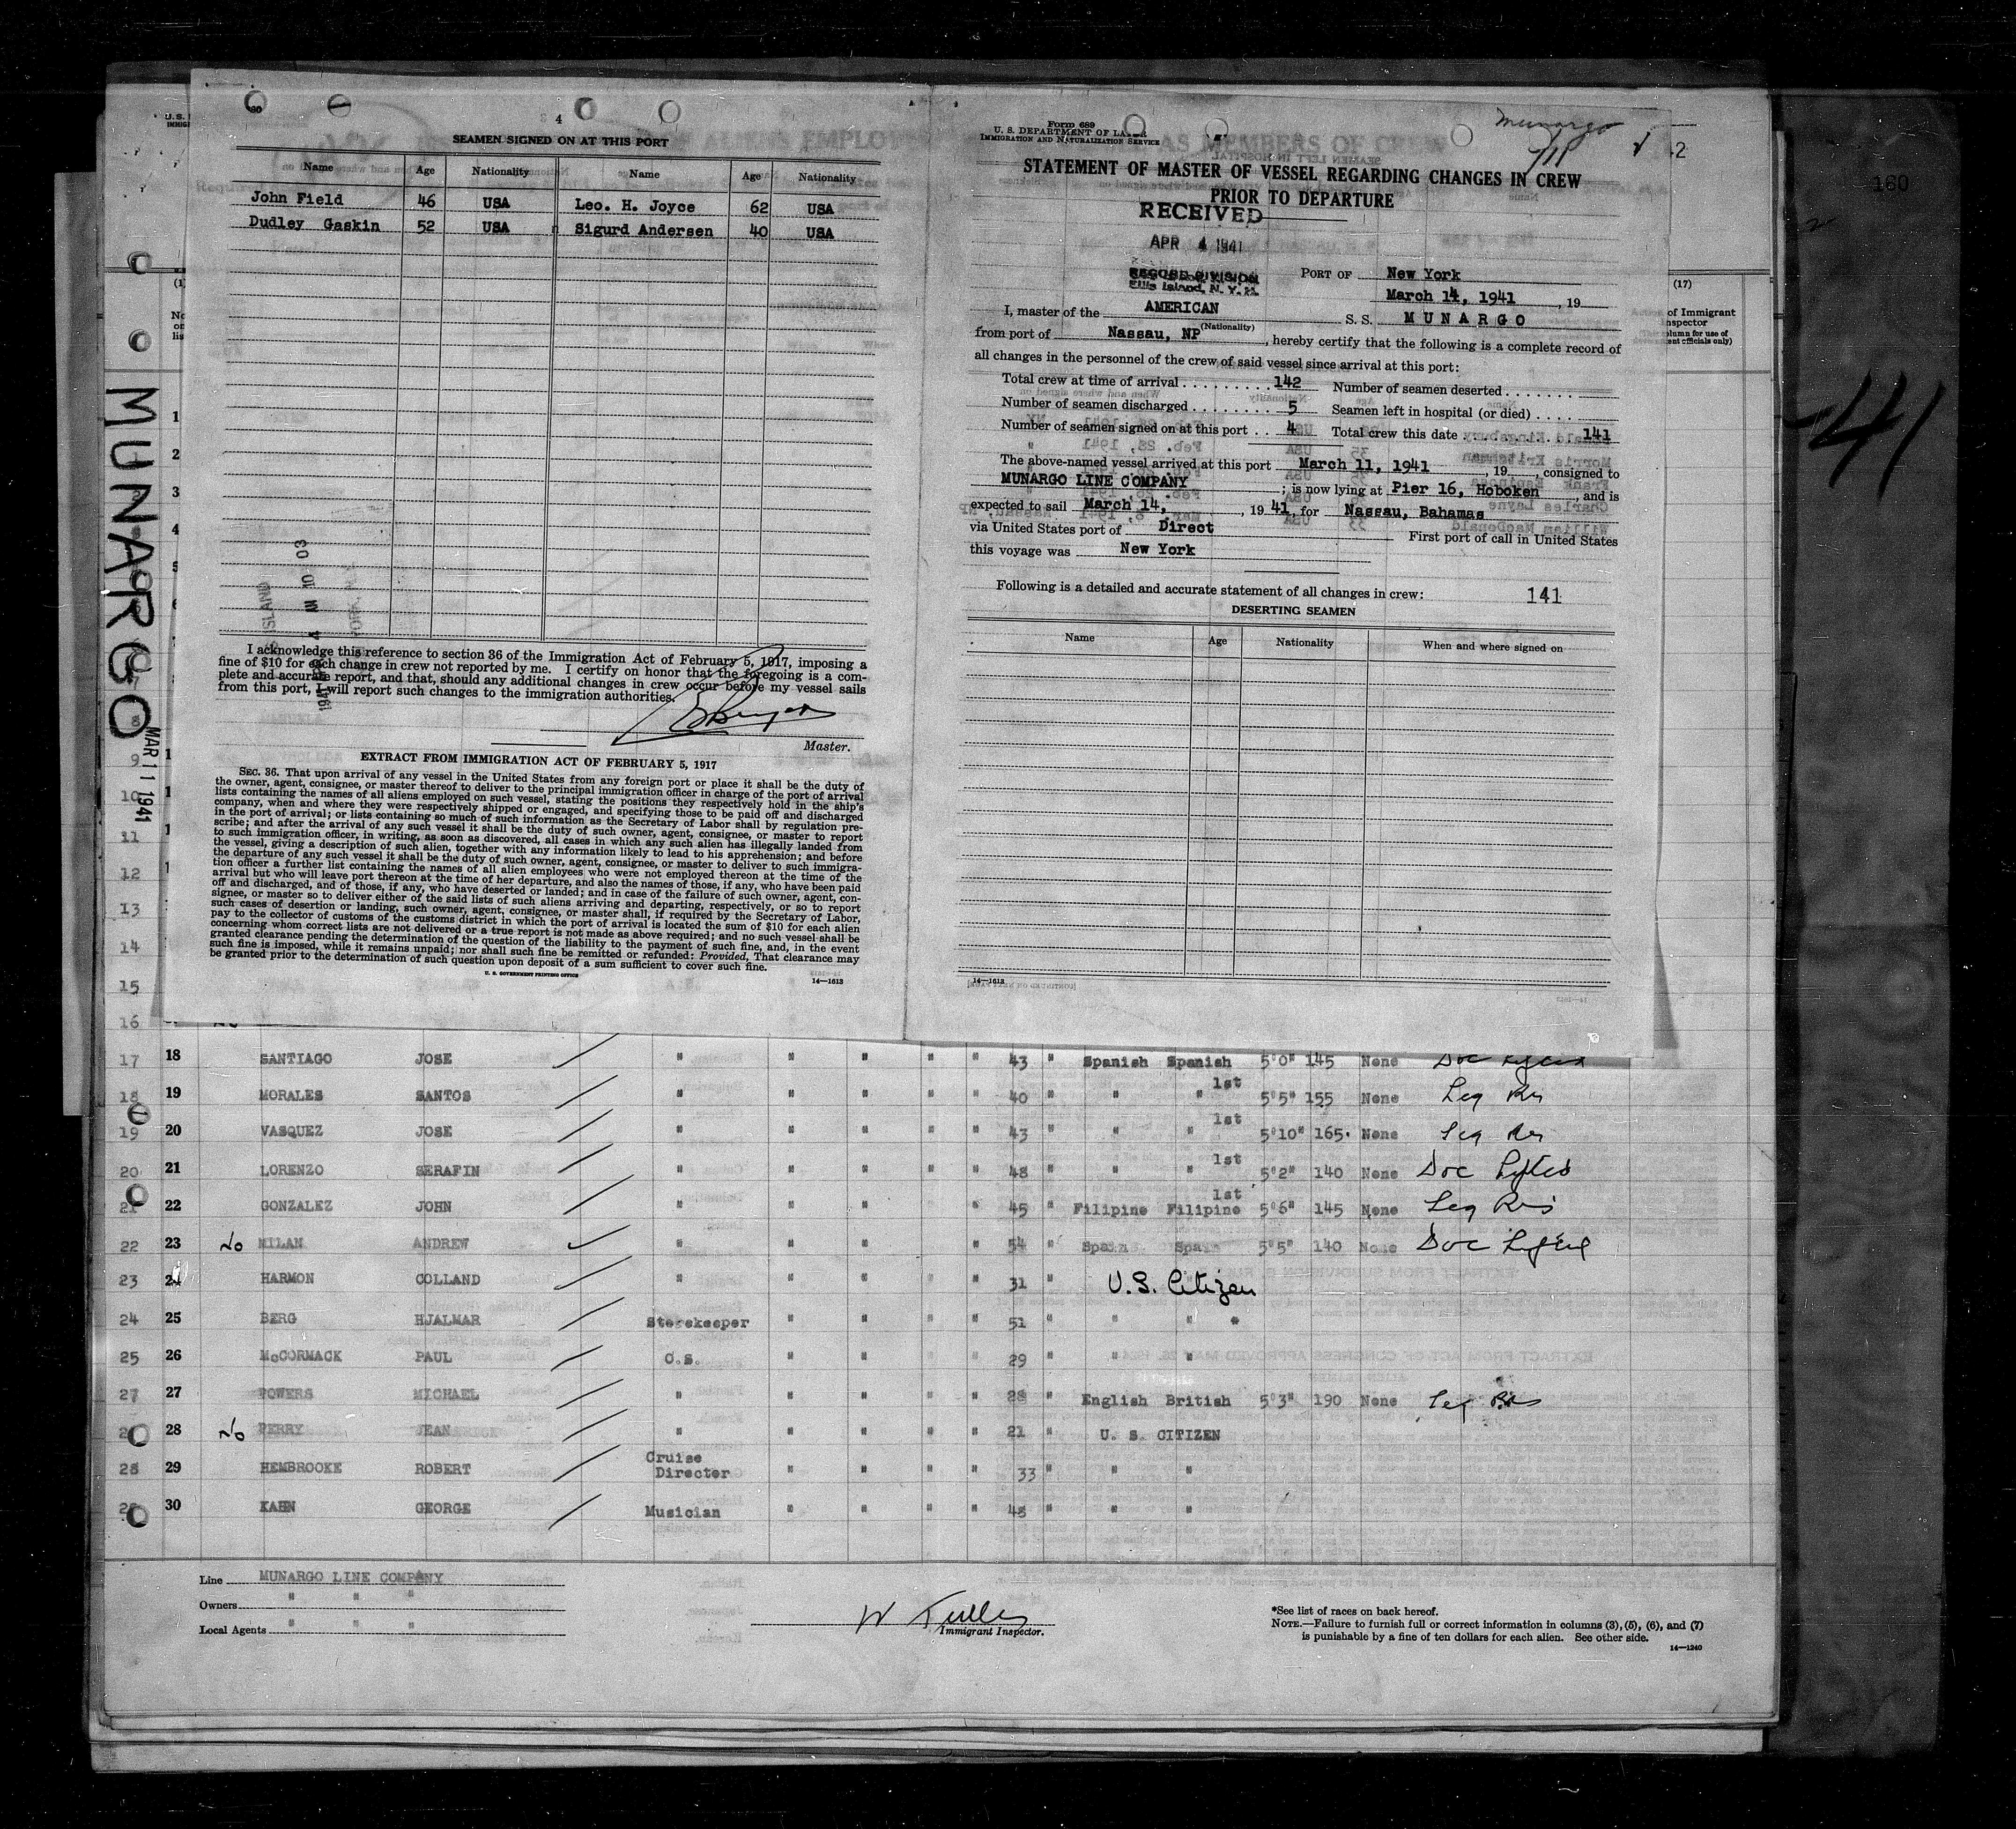 4
SEAMEN SIGNED ON AT THIS PORT
Name Age Nationality Name Age Nationality
John Field 46 USA Leo. H. Joyce 62 USA
Dudley Gaskin 52 USA Sigurd Andersen 40 USA
I acknowledge this reference to section 36 of the Immigration Act of February 5, 1917, imposing a
fine of $10 for each change in crew not reported by me. I certify on honor that the foregoing is a com-
plete and accurate report, and that, should any additional changes in crew occur before my vessel sails
from this port, I will report such changes to the immigration authorities.
Master.
EXTRACT FROM IMMIGRATION ACT OF FEBRUARY 5, 1917
SEC. 36. That upon arrival of any vessel in the United States from any foreign port or place it shall be the duty of
the owner, agent, consignee, or master thereof to deliver to the principal immigration officer in charge of the port of arrival
lists containing the names of all aliens employed on such vessel, stating the positions they respectively hold in the ship's
company, when and where they were respectively shipped or engaged, and specifying those to be paid off and discharged
in the port of arrival; or lists containing so much of such information as the Secretary of Labor shall by regulation pre-
scribe; and after the arrival of any such vessel it shall be the duty of such owner, agent, consignee, or master to report
to such immigration officer, in writing, as soon as discovered, all cases in which any such alien has illegally landed from
the vessel, giving a description of such alien, together with any information likely to lead to his apprehension; and before
the departure of any such vessel it shall be the duty of such owner, agent, consignee, or master to deliver to such immigra-
tion officer a further list containing the names of all alien employees who were not employed thereon at the time of the
arrival but who will leave port thereon at the time of her departure, and also the names of those, if any, who have been paid
off and discharged, and of those, if any, who have deserted or landed; and in case of the failure of such owner, agent, con-
signee, or master so to deliver either of the said lists of such aliens arriving and departing, respectively, or so to report
such cases of desertion or landing, such owner, agent, consignee, or master shall, if required by the Secretary of Labor,
pay to the collector of customs of the customs district in which the port of arrival is located the sum of $10 for each alien
concerning whom correct lists are not delivered or a true report is not made as above required; and no such vessel shall be
granted clearance pending the determination of the question of the liability to the payment of such fine, and, in the event
such fine is imposed, while it remains unpaid; nor shall such fine be remitted or refunded: Provided, That clearance may
be granted prior to the determination of such question upon deposit of a sum sufficient to cover such fine.
U. S. GOVERNMENT PRINTING OFFICE
14—1613
Form 689
U. S. DEPARTMENT OF LABOR
IMMIGRATION AND NATURALIZATION SERVICE
Munargo
711
STATEMENT OF MASTER OF VESSEL REGARDING CHANGES IN CREW
PRIOR TO DEPARTURE
RECEIVED
APR 4 1941
RECORD DIVISION
Ellis Island, N. Y. H.
PORT OF New York
March 14, 1941, 19
I, master of the AMERICAN S. S. MUNARGO
(Nationality)
from port of Nassau, NP, hereby certify that the following is a complete record of
all changes in the personnel of the crew of said vessel since arrival at this port:
Total crew at time of arrival 142 Number of seamen deserted
Number of seamen discharged 5 Seamen left in hospital (or died)
Number of seamen signed on at this port 4 Total crew this date 141
The above-named vessel arrived at this port March 11, 1941, 19, consigned to
MUNARGO LINE COMPANY; is now lying at Pier 16, Hoboken, and is
expected to sail March 14, 1941, for Nassau, Bahamas
via United States port of Direct First port of call in United States
this voyage was New York
Following is a detailed and accurate statement of all changes in crew: 141
DESERTING SEAMEN
Name Age Nationality When and where signed on
14—1613
(17)
of Immigrant
160
41
MUNARGO
MAR 11 1941
17 18 SANTIAGO JOSE " " " " " 43 " Spanish Spanish 5'0" 145 None
18 19 MORALES SANTOS " " " " " 40 " " 1st " 5'5" 155 None Leg Res
19 20 VASQUEZ JOSE " " " " " 43 " " 1st " 5'10" 165 None Leg Res
20 21 LORENZO SERAFIN " " " " " 48 " " 1st " 5'2" 140 None Doc Lifted
21 22 GONZALEZ JOHN " " " " " 45 " Filipine 1st Filipine 5'6" 145 None Leg Res
22 23 No MILAN ANDREW " " " " " 54 " Spain Spain 5'5" 140 None Doc Lifted
23 24 HARMON COLLAND " " " " " 31 " U.S. Citizen
24 25 BERG HJALMAR Storekeeper " " " " 51 " " "
25 26 McCORMACK PAUL O.S. " " " " 29 " " "
27 27 POWERS MICHAEL " " " " " 28 " English British 5'3" 190 None Leg Res
28 No PERRY JEAN " " " " " 21 " U. S. CITIZEN
28 29 HEMBROOKE ROBERT Cruise Director " " " " 33 " " "
30 KAHN GEORGE Musician " " " " 45 " " "
Line MUNARGO LINE COMPANY
Owners " " "
Local Agents " " "
Immigrant Inspector.
*See list of races on back hereof.
NOTE.—Failure to furnish full or correct information in columns (3), (5), (6), and (7)
is punishable by a fine of ten dollars for each alien. See other side.
14—1240